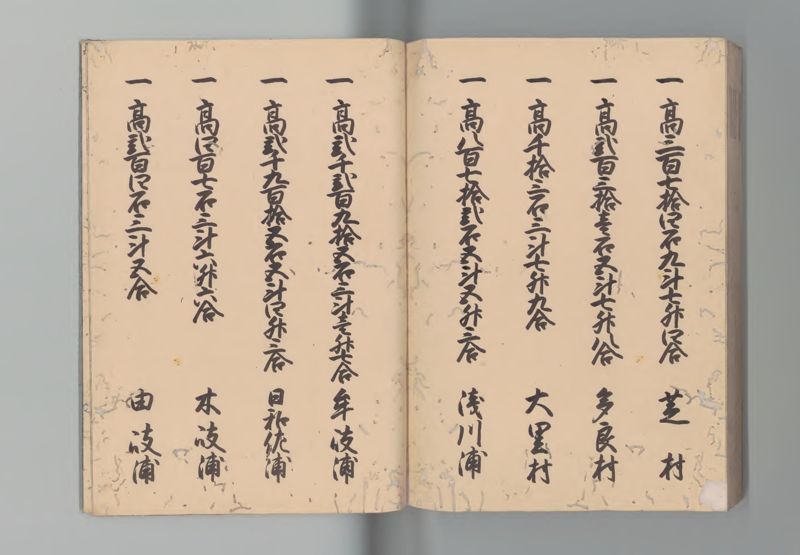 一 高三百七拾四石九斗七升四合 芝村
一 高弐百三拾壱石五斗七升八合 多良村
一 高千拾三石三斗七升九合 大里村
一 高八百七拾弐石五斗五升三合 浅川浦
一 高弐千弐百九拾五石三斗壱升七合 牟岐浦
一 高弐千九百拾五石五斗四升三合 日和佐浦
一 高四百七石三斗六升六合 木岐浦
一 高弐百四石三斗五合 由岐浦